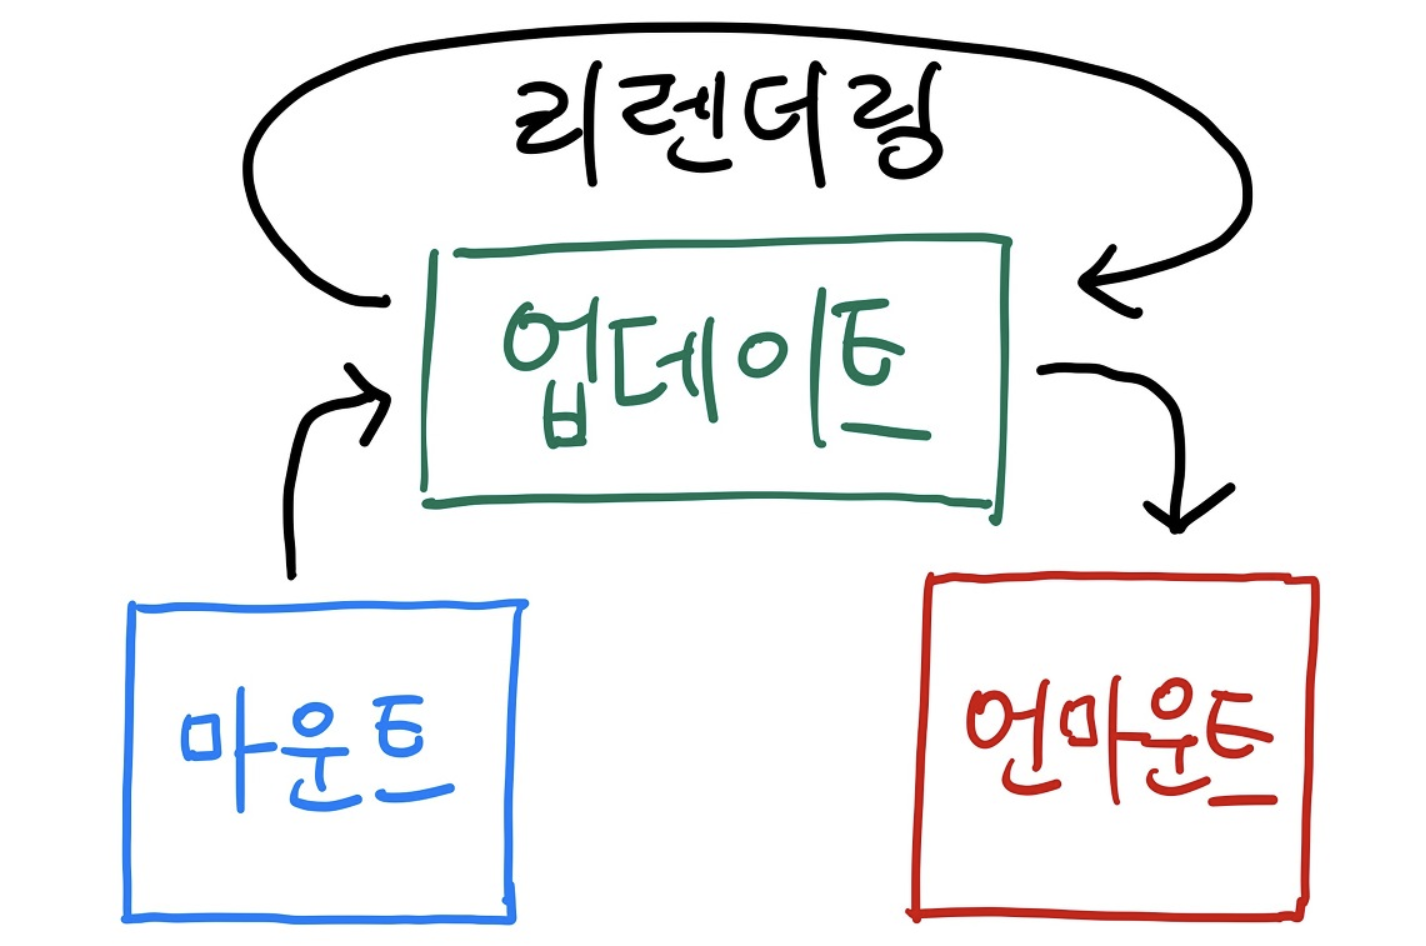 리렌더링
업데이트
마운트
언마운트